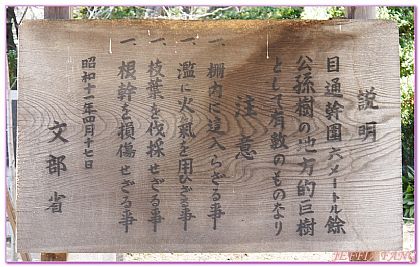 説明
目通幹圍六メートル餘
公孫樹の地方的巨樹
として有数のものなり
注意
一、柵内に立入らざる事
一、濫に火氣を用ひざる事
一、枝葉を伐採せざる事
一、根幹を損傷せざる事
昭和十一年四月十七日
文部省
JEFFI FANG